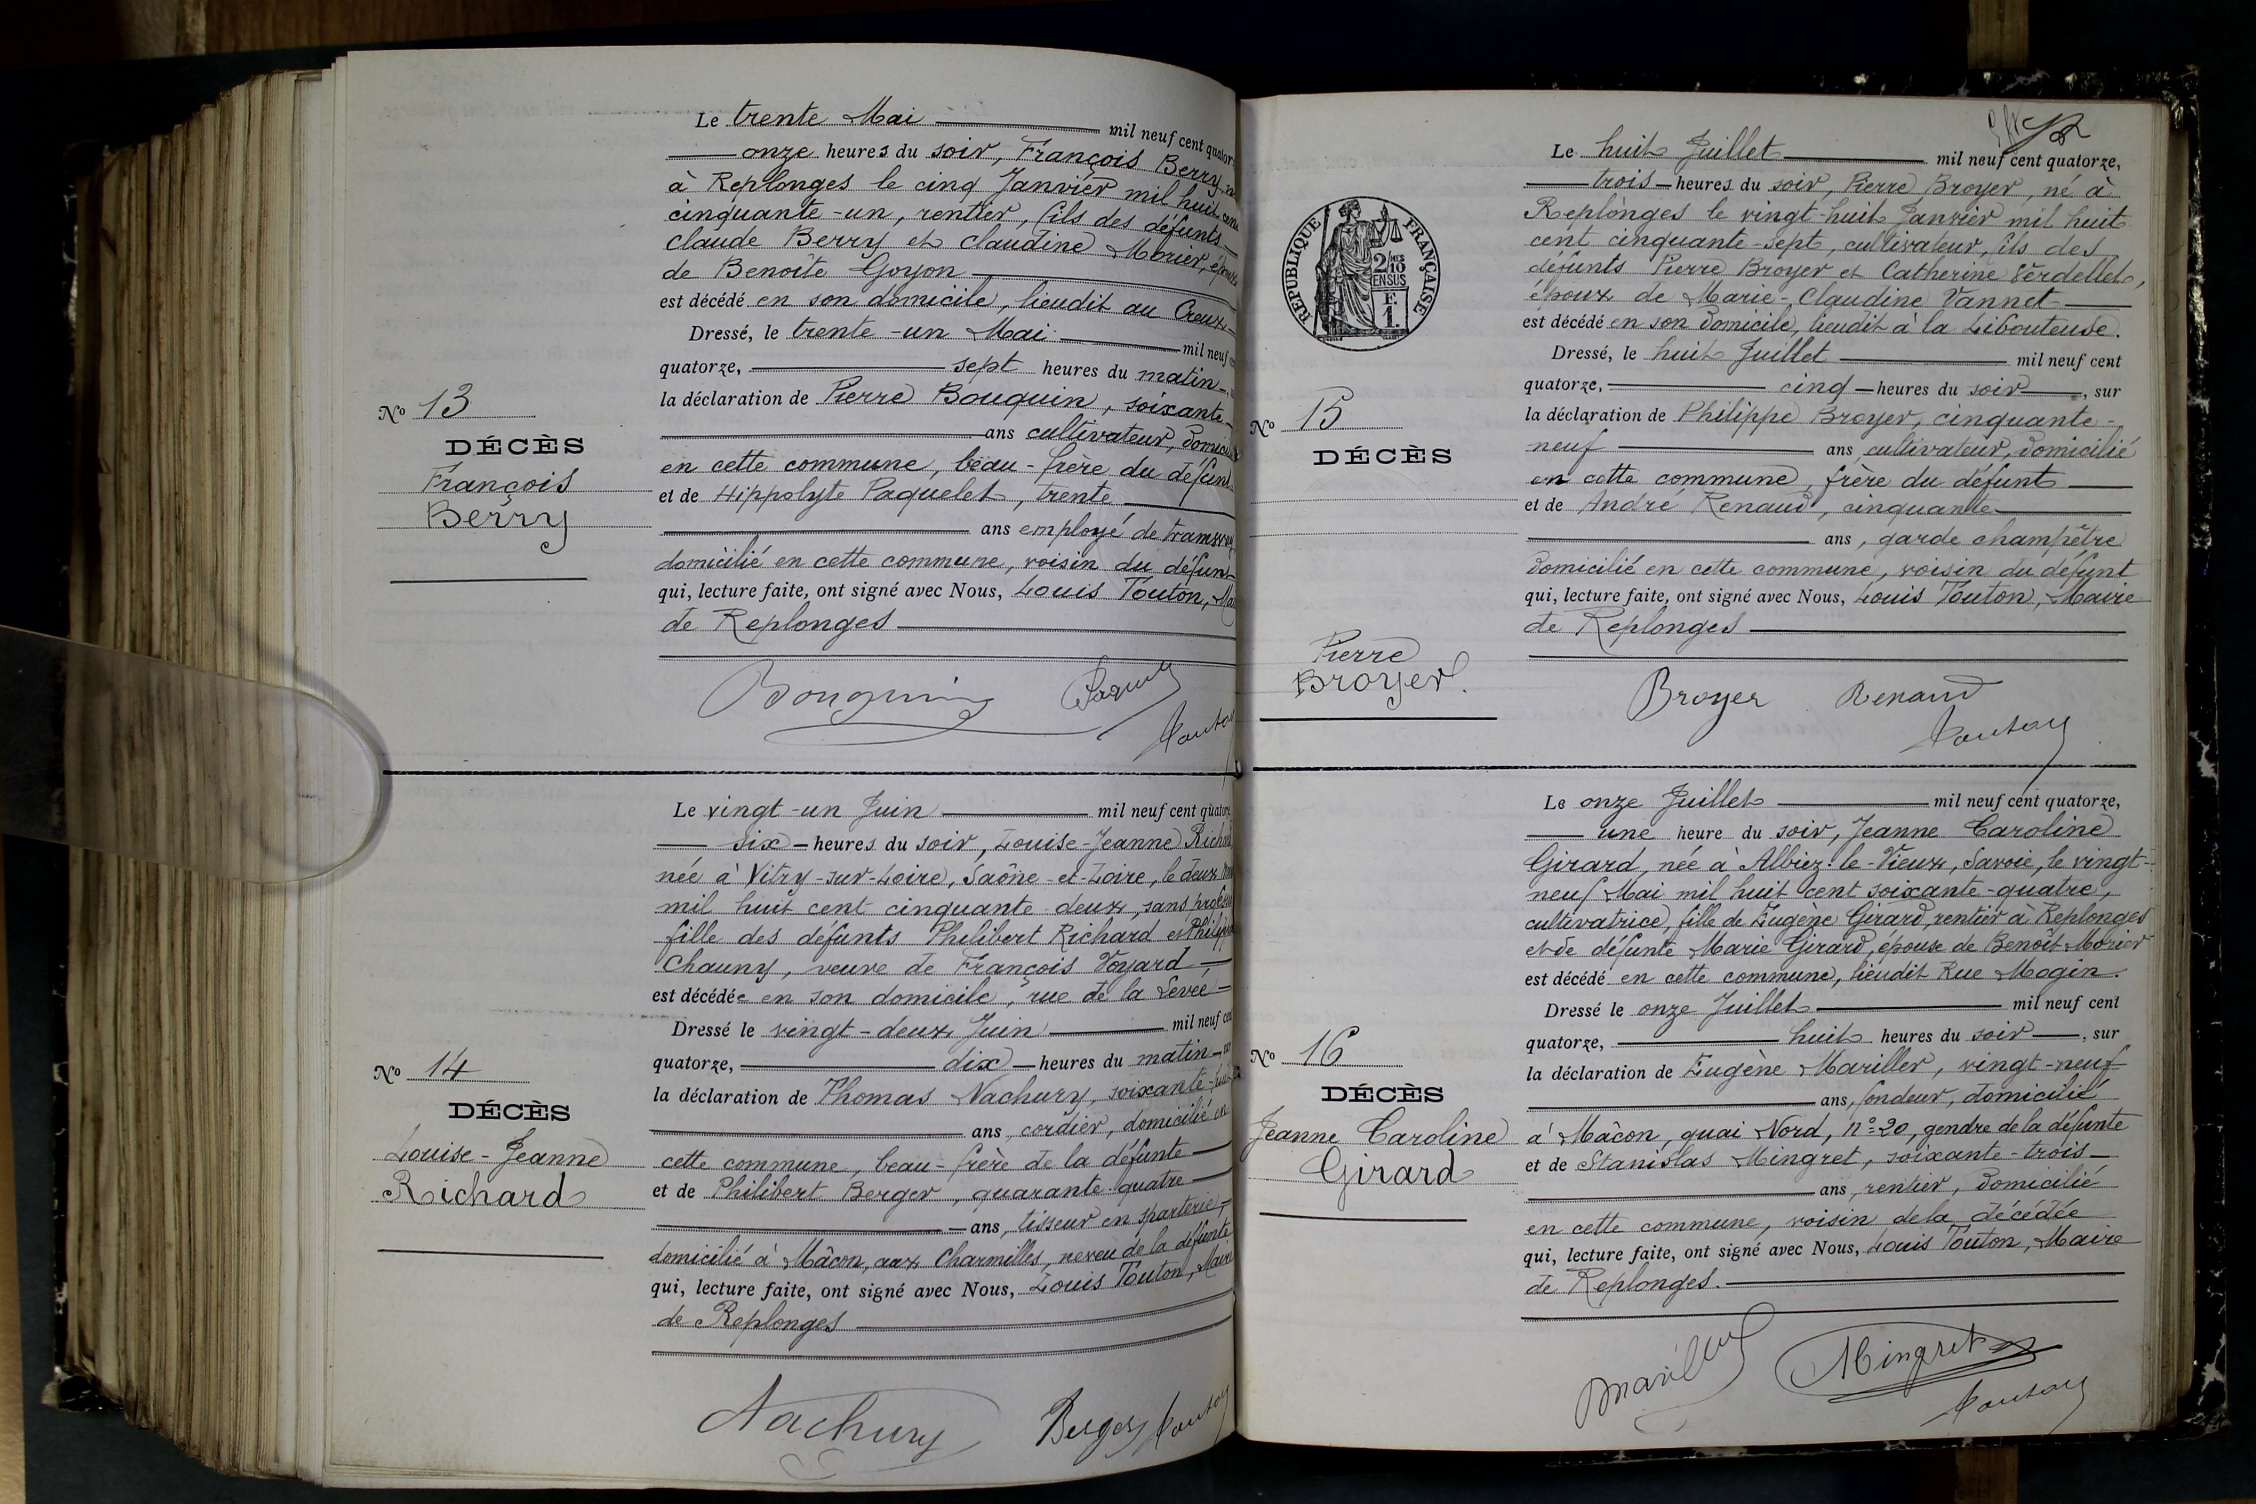 Le trente Mai mil neuf cent quator
onze heures du soir, François Berry, n
à Replonges le cinq Janvier mil huit cent
cinquante-un, rentier, fils des défunts
Claude Berry et Claudine Morier, époux
de Benoîte Goyon
est décédé en son domicile, lieudit au Creux
Dressé, le trente-un Mai mil neuf
quatorze, sept heures du matin
la déclaration de Pierre Bouquin, soixante
ans cultivateur, domicilié
en cette commune, beau-frère du défunt
et de Hippolyte Paquelet, trente
ans employé de tramway
domicilié en cette commune, voisin du défun
qui, lecture faite, ont signé avec Nous, Louis Touton, Ma
de Replonges
No 13
DÉCÈS
François
Berry
Bouquin
Touton
Le vingt-un Juin mil neuf cent quatorz
six heures du soir, Louise-Jeanne Richard
née à Vitry-sur-Loire, Saône-et-Loire, le deux
mil huit cent cinquante-deux, sans profession
fille des défunts Philibert Richard et Philip
Chauny, veuve de François Voyard
est décédée en son domicile, rue de la Levée
Dressé le vingt-deux Juin mil neuf cen
quatorze, dix heures du matin
la déclaration de Thomas Nachury, soixante
ans, cordier, domicilié en
cette commune, beau-frère de la défunte
et de Philibert Berger, quarante-quatre
ans, tisseur en sparterie,
domicilié à Mâcon, aux Charmilles, neveu de la défunte
qui, lecture faite, ont signé avec Nous, Louis Touton, Maire
de Replonges
No 14
DÉCÈS
Louise-Jeanne
Richard
Nachury Berger Touton
Le huit Juillet mil neuf cent quatorze,
trois heures du soir, Pierre Broyer, né à
Replonges le vingt-huit Janvier mil huit
cent cinquante-sept, cultivateur, fils des
défunts Pierre Broyer et Catherine Verdellet,
époux de Marie-Claudine Vannet
est décédé en son domicile, lieudit à la Libouteuse.
Dressé, le huit Juillet mil neuf cent
quatorze, cinq heures du soir, sur
la déclaration de Philippe Broyer, cinquante-
neuf ans, cultivateur, domicilié
en cette commune, frère du défunt
et de André Renaud, cinquante
ans, garde champêtre
domicilié en cette commune, voisin du défunt
qui, lecture faite, ont signé avec Nous, Louis Touton, Maire
de Replonges
RÉPUBLIQUE FRANÇAISE
2/10 MES
EN SUS
F.
1.
No 15
DÉCÈS
Pierre
Broyer.
Broyer Renaud
Touton
Le onze Juillet mil neuf cent quatorze,
une heure du soir, Jeanne Caroline
Girard, née à Albiez-le-Vieux, Savoie, le vingt-
neuf Mai mil huit cent soixante-quatre,
cultivatrice, fille de Eugène Girard, rentier à Replonges
et de défunte Marie Girard, épouse de Benoît Morier
est décédé en cette commune, lieudit Rue Mogin.
Dressé le onze Juillet mil neuf cent
quatorze, huit heures du soir, sur
la déclaration de Eugène Mariller, vingt-neuf
ans, fondeur, domicilié
à Mâcon, quai Nord, n° 20, gendre de la défunte
et de Stanislas Mingret, soixante-trois
ans, rentier, domicilié
en cette commune, voisin de la décédée
qui, lecture faite, ont signé avec Nous, Louis Touton, Maire
de Replonges.
No 16
DÉCÈS
Jeanne Caroline
Girard
Mariller Mingret
Touton